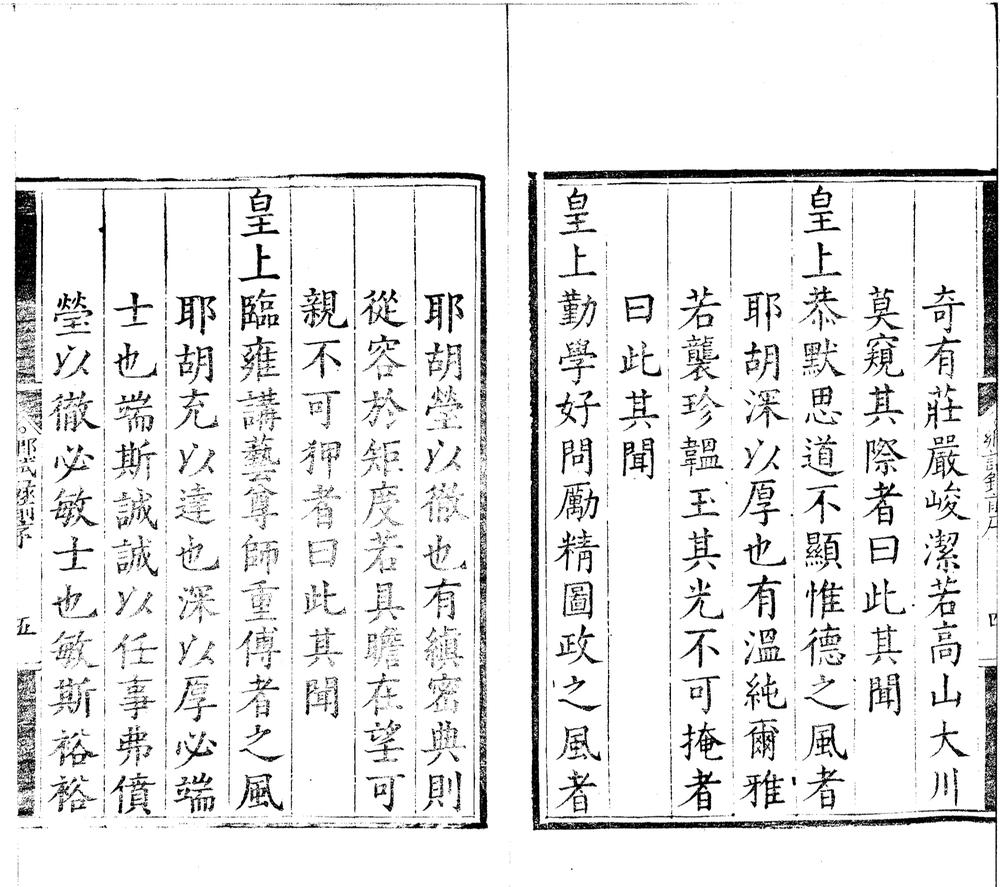 奇有莊嚴峻潔若高山大川
莫窺其際者曰此其聞
皇上恭默思道不顯惟德之風者
耶胡深以厚也有溫純爾雅
若襲珍韞玉其光不可掩者
曰此其聞
皇上勤學好問勵精圖政之風者
四
耶胡瑩以徹也有縝密典則
從容於矩度若具瞻在望可
親不可狎者曰此其聞
皇上臨雍講藝尊師重傅者之風
耶胡充以達也深以厚必端
士也端斯誠誠以任事弗僨
瑩以徹必敏士也敏斯裕裕
五